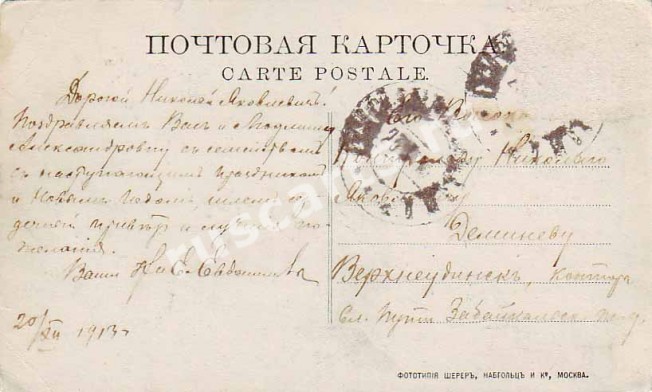 ПОЧТОВАЯ КАРТОЧКА
CARTE POSTALE.
Дорогой Николай Яковлевичъ!
Поздравляемъ Васъ и Людмилу
Александровну съ семействомъ
съ наступающимъ праздникомъ
и Новымъ Годомъ, шлемъ сер-
дечный привѣтъ и лучшія по-
желанія.
Ваши Н. и Е.
20/XII 1913 г.
Его
Николаю
Яковлевичу
Деминеву
Верхнеудинскъ, Контора
Сл. Пути Забайкальск.
ФОТОТИПІЯ ШЕРЕРЪ, НАБГОЛЬЦЪ И Кº, МОСКВА.
ruscards.ru